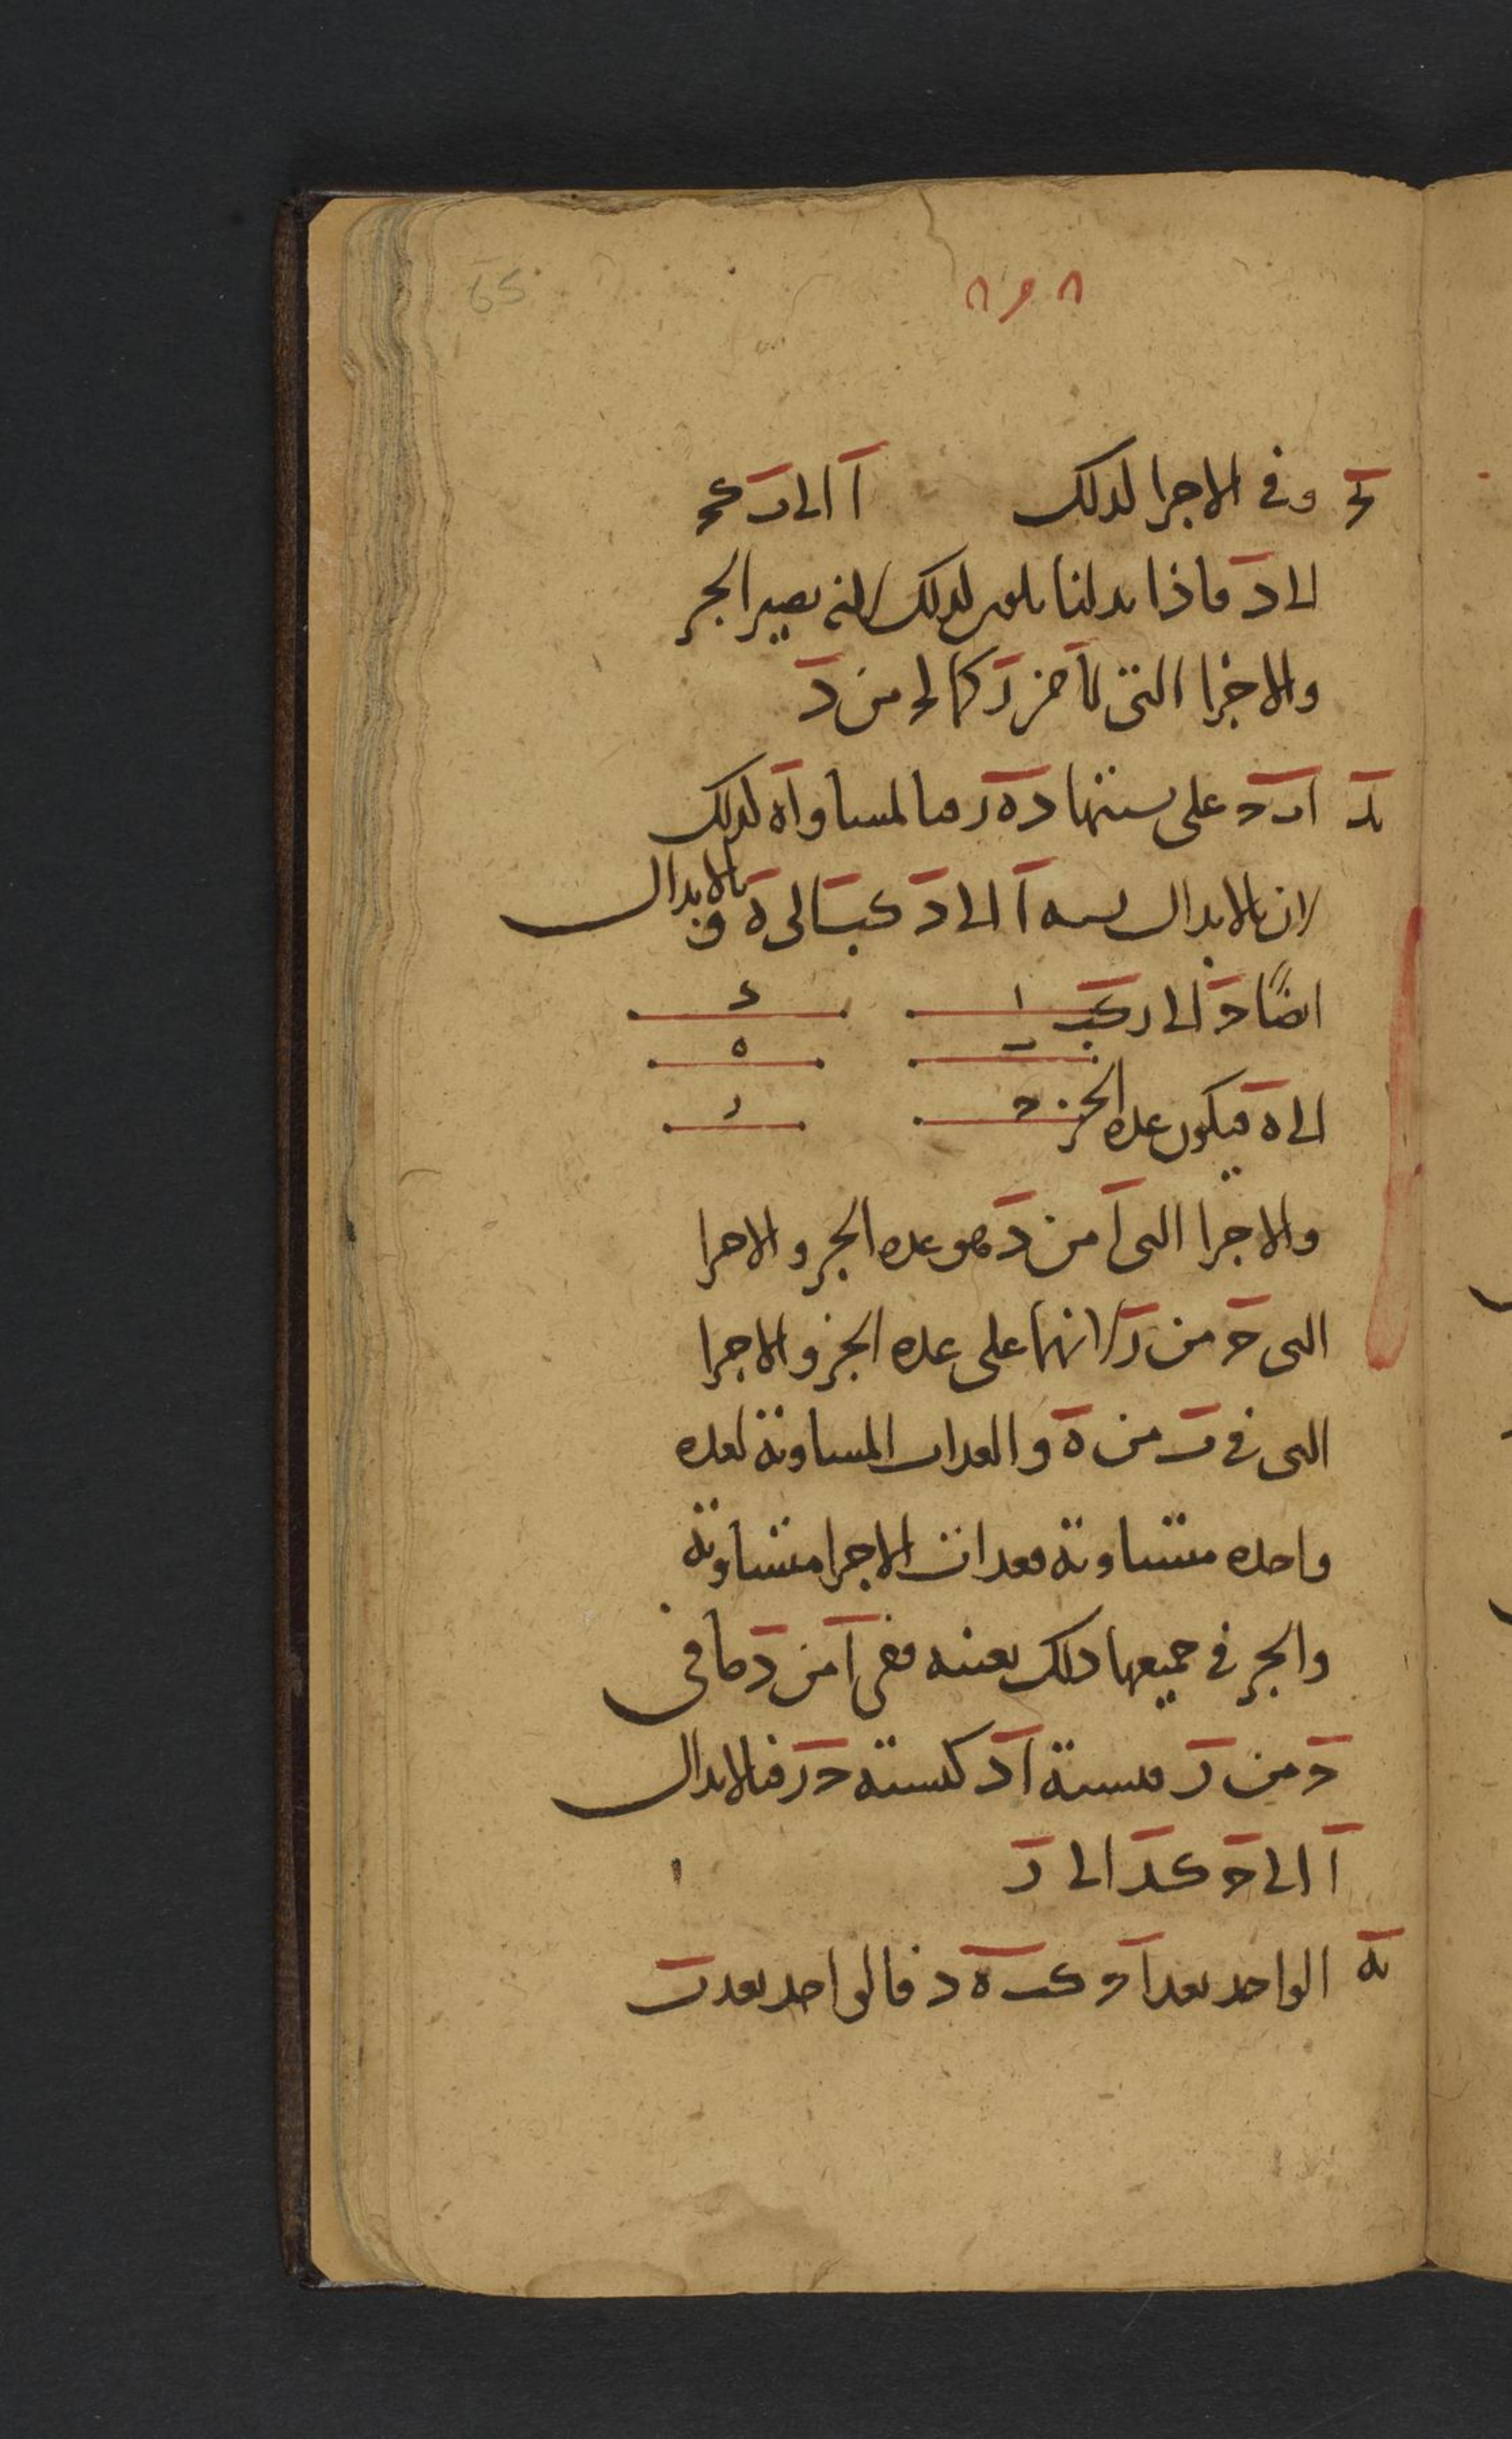 65
يج وفى الاجزا لذلك اَ الى بَ كحَ
الى دَ فاذا بدلنا يكون لذلك لانه يصير الجز
والاجزا التى لاَ من بَ كما لحَ من دَ
يد اَ بَ حَ على نسبتها دَ هَ رَ فبالمساواة لذلك
لان بالابدال نسبة اَ الى دَ كبَ الى هَ وبالابدال
ايضًا حَ الى رَ كبَ
الى هَ فيكون عدة الجز
ا
ب
ح
د
ه
ر
والاجزا التى اَ من دَ هو عدة الجز والاجزا
التى حَ من رَ لانهما على عدة الجز والاجزا
التى فى بَ من هَ والعدات المساوية لعدة
واحدة متساوية فعدات الاجزا متساوية
والجز فى جميعها ذلك بعينه ففى اَ من دَ ما فى
حَ من رَ فنسبة اَ دَ كنسبة حَ رَ فبالابدال
اَ الى حَ كدَ الى رَ
يه الواحد يعد اَ و كب هَ د فالواحد يعد بَ